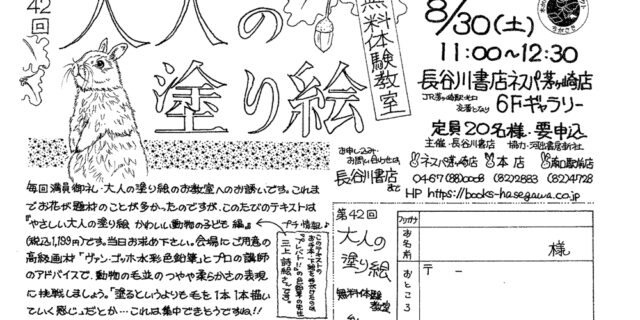 第42回
大人の
塗り絵
無料体験教室
8/30(土)
11:00〜12:30
長谷川書店ネスパ茅ヶ崎店
JR茅ヶ崎駅北口
6Fギャラリー
定員20名様・要申込
主催・長谷川書店 協力・河出書房新社
お申し込み・
お問い合わせは
長谷川書店
まで
ネスパ茅ヶ崎店 本店 南口駅前店
0467(88)0008 (82)2883 (82)4728
HP https://books-hasegawa.co.jp
毎回満員御礼・大人の塗り絵のお教室へのお誘いです。これま
でお花が題材のことが多かったのですが、このたびのテキストは
『やさしい大人の塗り絵 かわいい動物の子ども編』
(税込1,199円)です。当日お求め下さい。会場にご用意の
高級画材「ヴァン・ゴッホ水彩色鉛筆」とプロの講師
のアドバイスで、動物の毛並のつやや柔らかさの表現
に挑戦しましょう。「塗るというよりも毛を1本1本描いて
いく感じ」だとか…これは集中できそうですね!!
プチ情報
第42回
大人の
塗り絵
無料体験
教室
フリガナ
お名前
様
おところ
〒 -